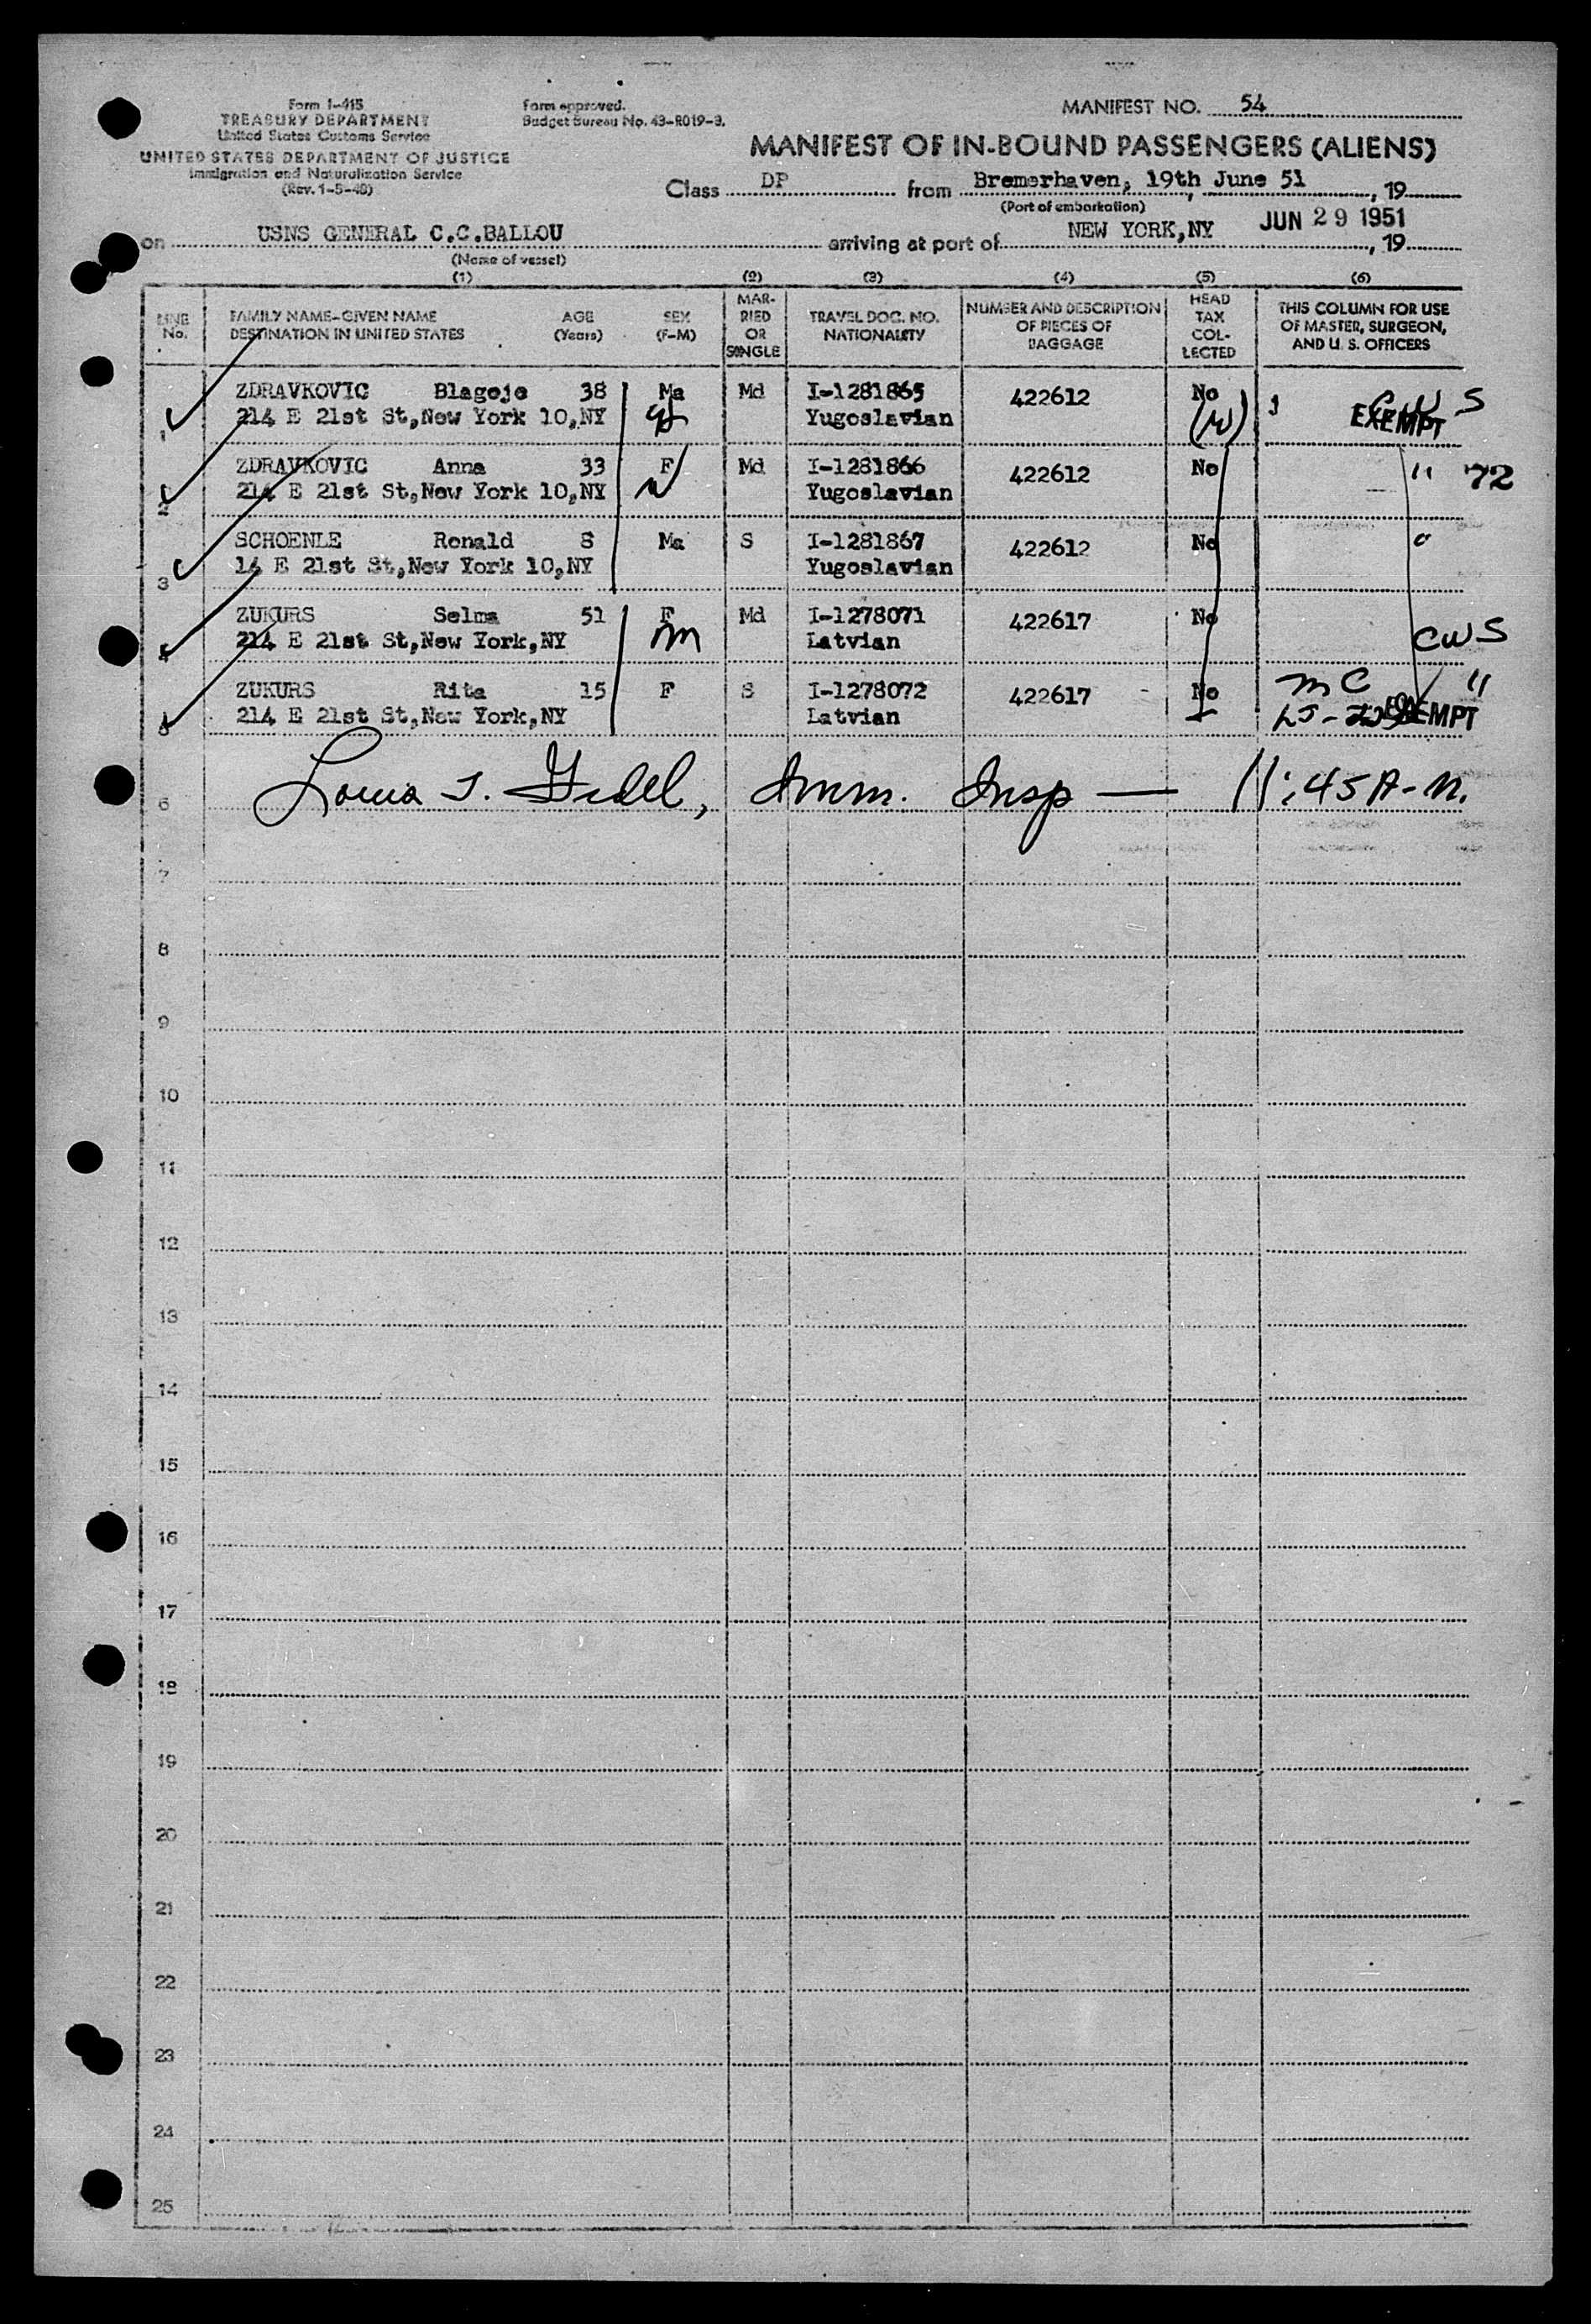 Form I-415
TREASURY DEPARTMENT
United States Customs Service
UNITED STATES DEPARTMENT OF JUSTICE
Immigration and Naturalization Service
(Rev. 1-5-48)
Form approved.
Budget Bureau No. 43-R019-3.
MANIFEST NO. 54
MANIFEST OF IN-BOUND PASSENGERS (ALIENS)
Class DP from Bremerhaven, 19th June 51, 19
(Port of embarkation)
on USNS GENERAL C.C.BALLOU arriving at port of NEW YORK,NY JUN 29 1951, 19
(Name of vessel)
(1) (2) (3) (4) (5) (6)
LINE No. FAMILY NAME-GIVEN NAME DESTINATION IN UNITED STATES AGE (Years) SEX (F-M) MARRIED OR SINGLE TRAVEL DOC. NO. NATIONALITY NUMBER AND DESCRIPTION OF PIECES OF BAGGAGE HEAD TAX COLLECTED THIS COLUMN FOR USE OF MASTER, SURGEON, AND U. S. OFFICERS
1 ZDRAVKOVIC Blagoje 38 Ma Md I-1281865 422612 No
214 E 21st St,New York 10,NY Yugoslavian (W) EXEMPT
2 ZDRAVKOVIC Anna 33 F Md I-1281866 422612 No " 72
214 E 21st St,New York 10,NY Yugoslavian
3 SCHOENLE Ronald 8 Ma S I-1281867 422612 No "
14 E 21st St,New York 10,NY Yugoslavian
4 ZUKURS Selma 51 F Md I-1278071 422617 No
214 E 21st St,New York,NY m Latvian CWS
5 ZUKURS Rita 15 F S I-1278072 422617 No MC "
214 E 21st St,New York,NY Latvian EXEMPT
6 Imm. Insp — 11:45 A.M.
7
8
9
10
11
12
13
14
15
16
17
18
19
20
21
22
23
24
25